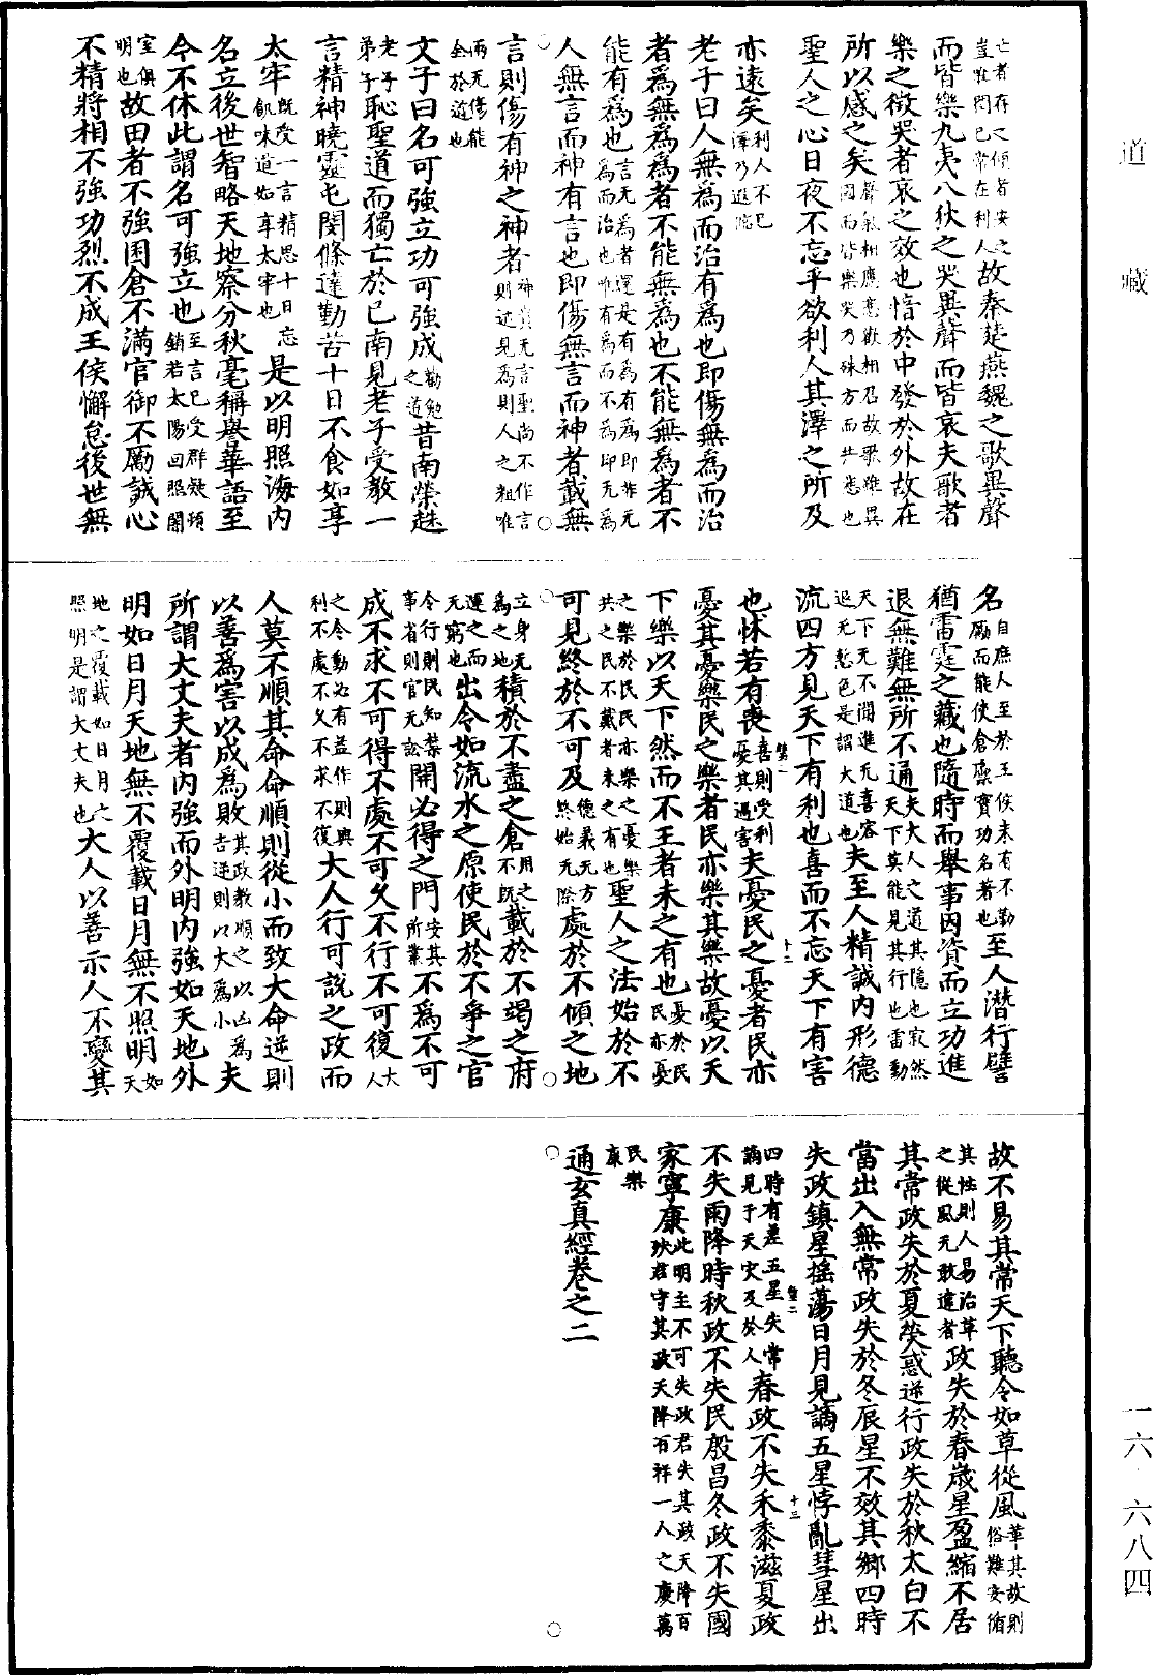 道藏
亡者存之傾者安之豈唯閏已常在利人故秦楚燕魏之歌異聲
而皆樂九夷八狄之哭異聲而皆哀夫歌者
樂之徵哭者哀之效也愔於中發於外故在
所以感之矣聲氣相應悲歡相召故歌雖異國而皆樂哭乃殊方而共悲也
聖人之心日夜不忘乎欲利人其澤之所及
亦遠矣利人不已澤乃遐臨
老子曰人無為而治有為也即傷無為而治
者為無為為者不能無為也不能無為者不
能有為也言无為者還是有為有為即非无為而治也唯有為而不為即无為
人無言而神有言也即傷無言而神者載無
言則傷有神之神者神貴无言聖尚不作言則迹見為則人之粗唯
兩无傷能全於道也
文子曰名可強立功可強成勸勉之道昔南榮趎
恥聖道而獨亡於己南見老子受教一
老子弟子
言精神曉靈屯閔條達勤苦十日不食如享
太牢既受一言精思十日忘飢味道如享太牢也是以明照海內
名立後世智略天地察分秋毫稱譽華語至
今不休此謂名可強立也至言已受群疑頓銷若太陽回照闇
室俱明也故田者不強囷倉不滿官御不厲誠心
不精將相不強功烈不成王侯懈怠後世無
名自庶人至於王侯未有不勤厲而能使倉廩實功名著也至人潛行譬
猶雷霆之藏也隨時而舉事因資而立功進
退無難無所不通夫大人之道其隱也寂然天下莫能見其行也雷動
天下无不聞進无喜容退无慙色是謂大道也夫至人精誠內形德
流四方見天下有利也喜而不忘天下有害
也怵若有喪喜則受利憂其過害夫憂民之憂者民亦
憂其憂樂民之樂者民亦樂其樂故憂以天
下樂以天下然而不王者未之有也憂於民民亦憂
之樂於民民亦樂之憂樂共之民不戴者未之有也聖人之法始於不
可見終於不可及德義无方終始无際處於不傾之地
立身无為之地積於不盡之倉用之不既載於不竭之府
運之而无窮也出令如流水之原使民於不爭之官
令行則民知禁事省則官无訟開必得之門安其所業不為不可
成不求不可得不處不可久不行不可復大人
之令動必有益作則興利不處不久不求不復大人行可說之政而
人莫不順其命命順則從小而致大命逆則
以善為害以成為敗其政教順之以凶為吉逆則以大為小夫
所謂大丈夫者內強而外明內強如天地外
明如日月天地無不覆載日月無不照明如天
地之覆載如日月之照明是謂大丈夫也大人以善示人不變其
故不易其常天下聽令如草從風革其故則俗難安循
其性則人易治草之從風无敢違者政失於春歲星盈縮不居
其常政失於夏熒惑逆行政失於秋太白不
當出入無常政失於冬辰星不效其鄉四時
失政鎮星搖蕩日月見謫五星悖亂彗星出
四時有差五星失常謫見于天災及於人春政不失禾黍滋夏政
不失雨降時秋政不失民殷昌冬政不失國
家寧康此明主不可失政君失其政天降百殃君守其政天降百祥一人之慶萬
民樂康
通玄真經卷之二
一六·六八四